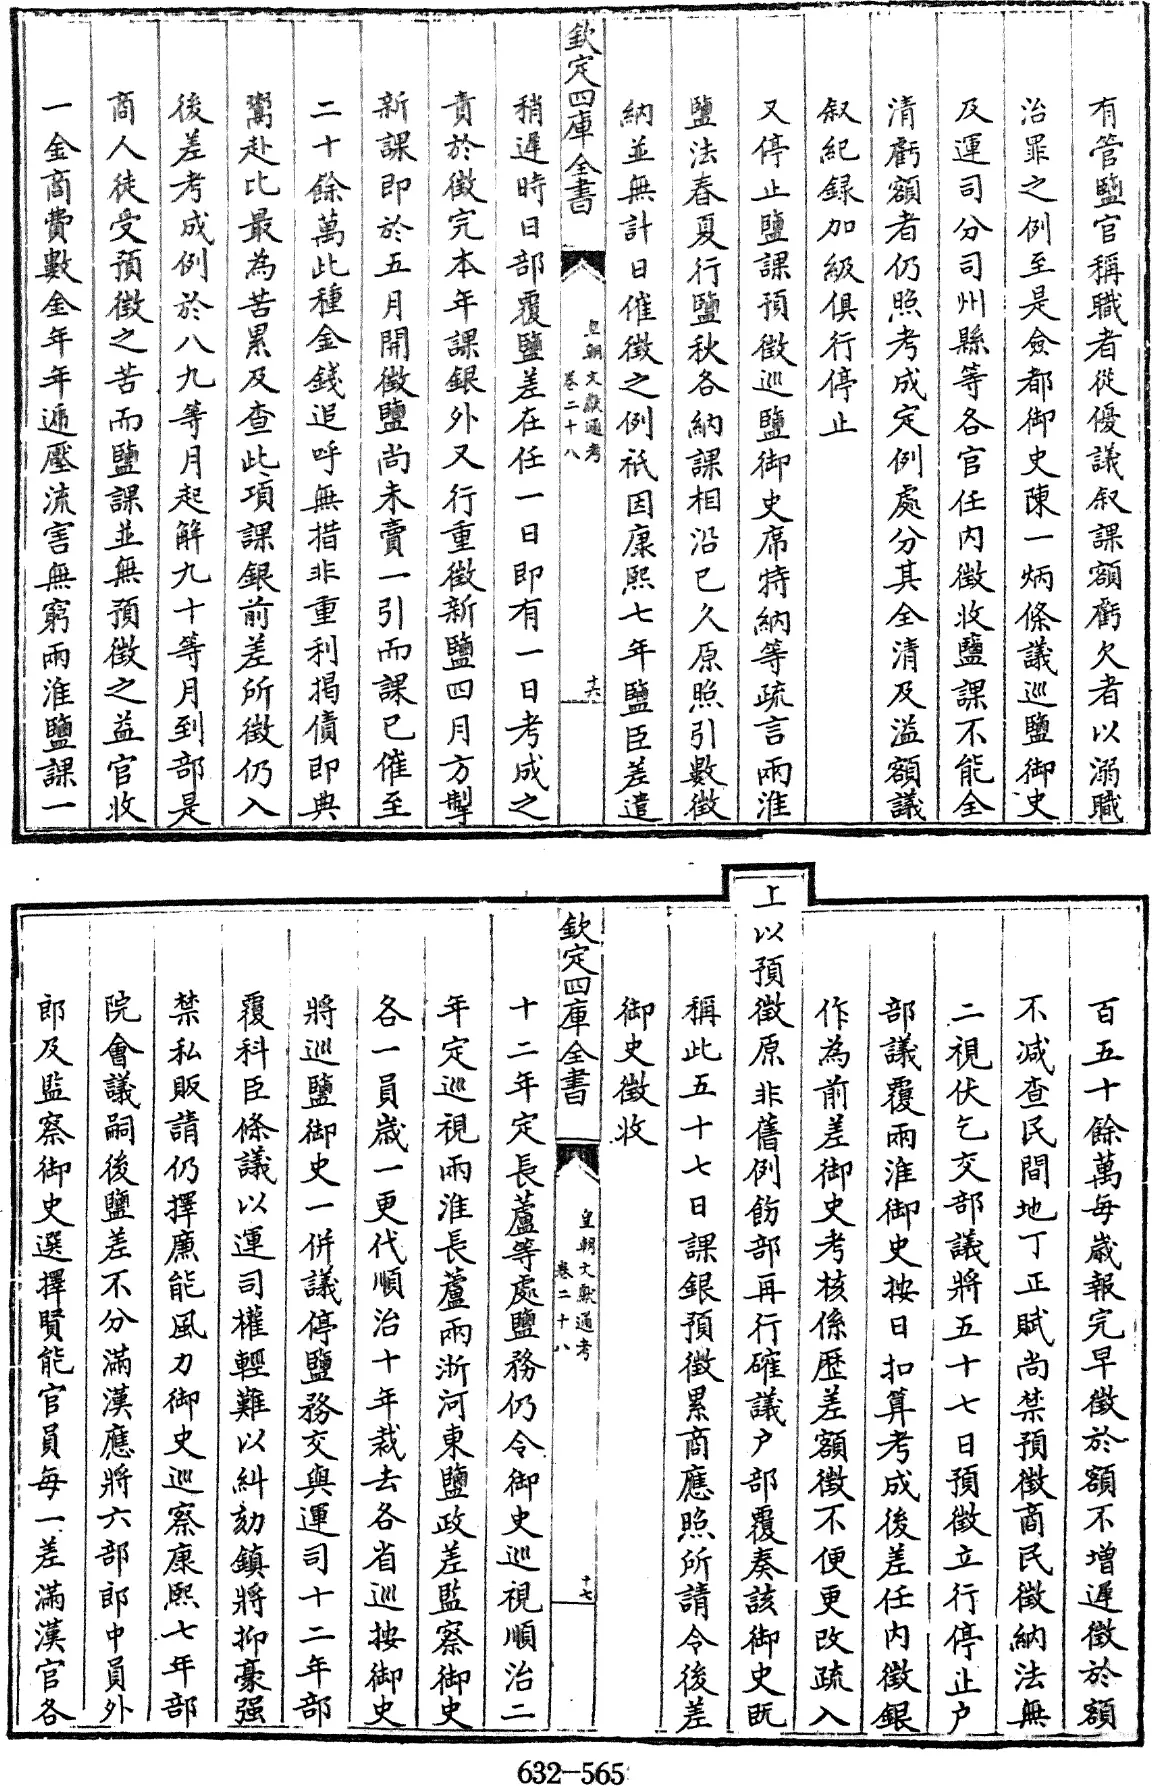 有管鹽官稱職者從優議叙課額虧欠者以溺職
治罪之例至是僉都御史陳一炳條議巡鹽御史
及運司分司州縣等各官任内徴收鹽課不能全
清虧額者仍照考成定例處分其全清及溢額議
叙紀録加級俱行停止
又停止鹽課預徴巡鹽御史席特納等疏言兩淮
鹽法春夏行鹽秋各納課相沿已久原照引數徴
納並無計日催徴之例祇因康熙七年鹽臣差遣
欽定四庫全書
皇朝文獻通考
卷二十八
十六
稍遲時日部覆鹽差在任一日即有一日考成之
責於徴完本年課銀外又行重徴新鹽四月方掣
新課即於五月開徴鹽尚未賣一引而課已催至
二十餘萬此種金錢追呼無措非重利掲債即典
鬻赴比最為苦累及查此項課銀前差所徴仍入
後差考成例於八九等月起解九十等月到部是
商人徒受預徴之苦而鹽課並無預徴之益官收
一金商費數金年年遞壓流害無窮兩淮鹽課一
百五十餘萬每歳報完早徴於額不增遲徴於額
不减查民間地丁正賦尚禁預徴商民徴納法無
二視伏乞交部議將五十七日預徴立行停止户
部議覆兩淮御史按日扣算考成後差任内徴銀
作為前差御史考核係歷差額徴不便更改疏入
上以預徴原非舊例飭部再行確議户部覆奏該御史既
稱此五十七日課銀預徴累商應照所請令後差
御史徴收
欽定四庫全書
皇朝文獻通考
卷二十八
十七
十二年定長蘆等處鹽務仍令御史巡視順治二
年定巡視兩淮長蘆兩浙河東鹽政差監察御史
各一員歳一更代順治十年裁去各省巡按御史
將巡鹽御史一併議停鹽務交與運司十二年部
覆科臣條議以運司權輕難以糾劾鎮將抑豪强
禁私販請仍擇廉能風力御史巡察康熙七年部
院會議嗣後鹽差不分滿漢應將六部郎中員外
郎及監察御史選擇賢能官員每一差滿漢官各
632-565